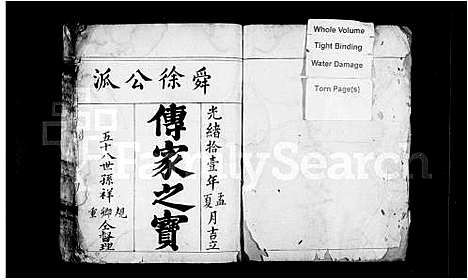 舜徐公派
光緒拾壹年孟夏月吉立
傳家之寶
五十八世孫祥規卿重仝督理
Whole Volume
Tight Binding
Water Damage
Torn Page(s)
FamilySearch